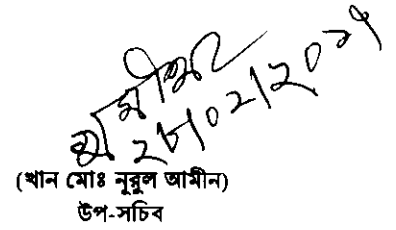 ২৮/০২/২০১৭
(খান মোঃ নূরুল আমীন)
উপ-সচিব